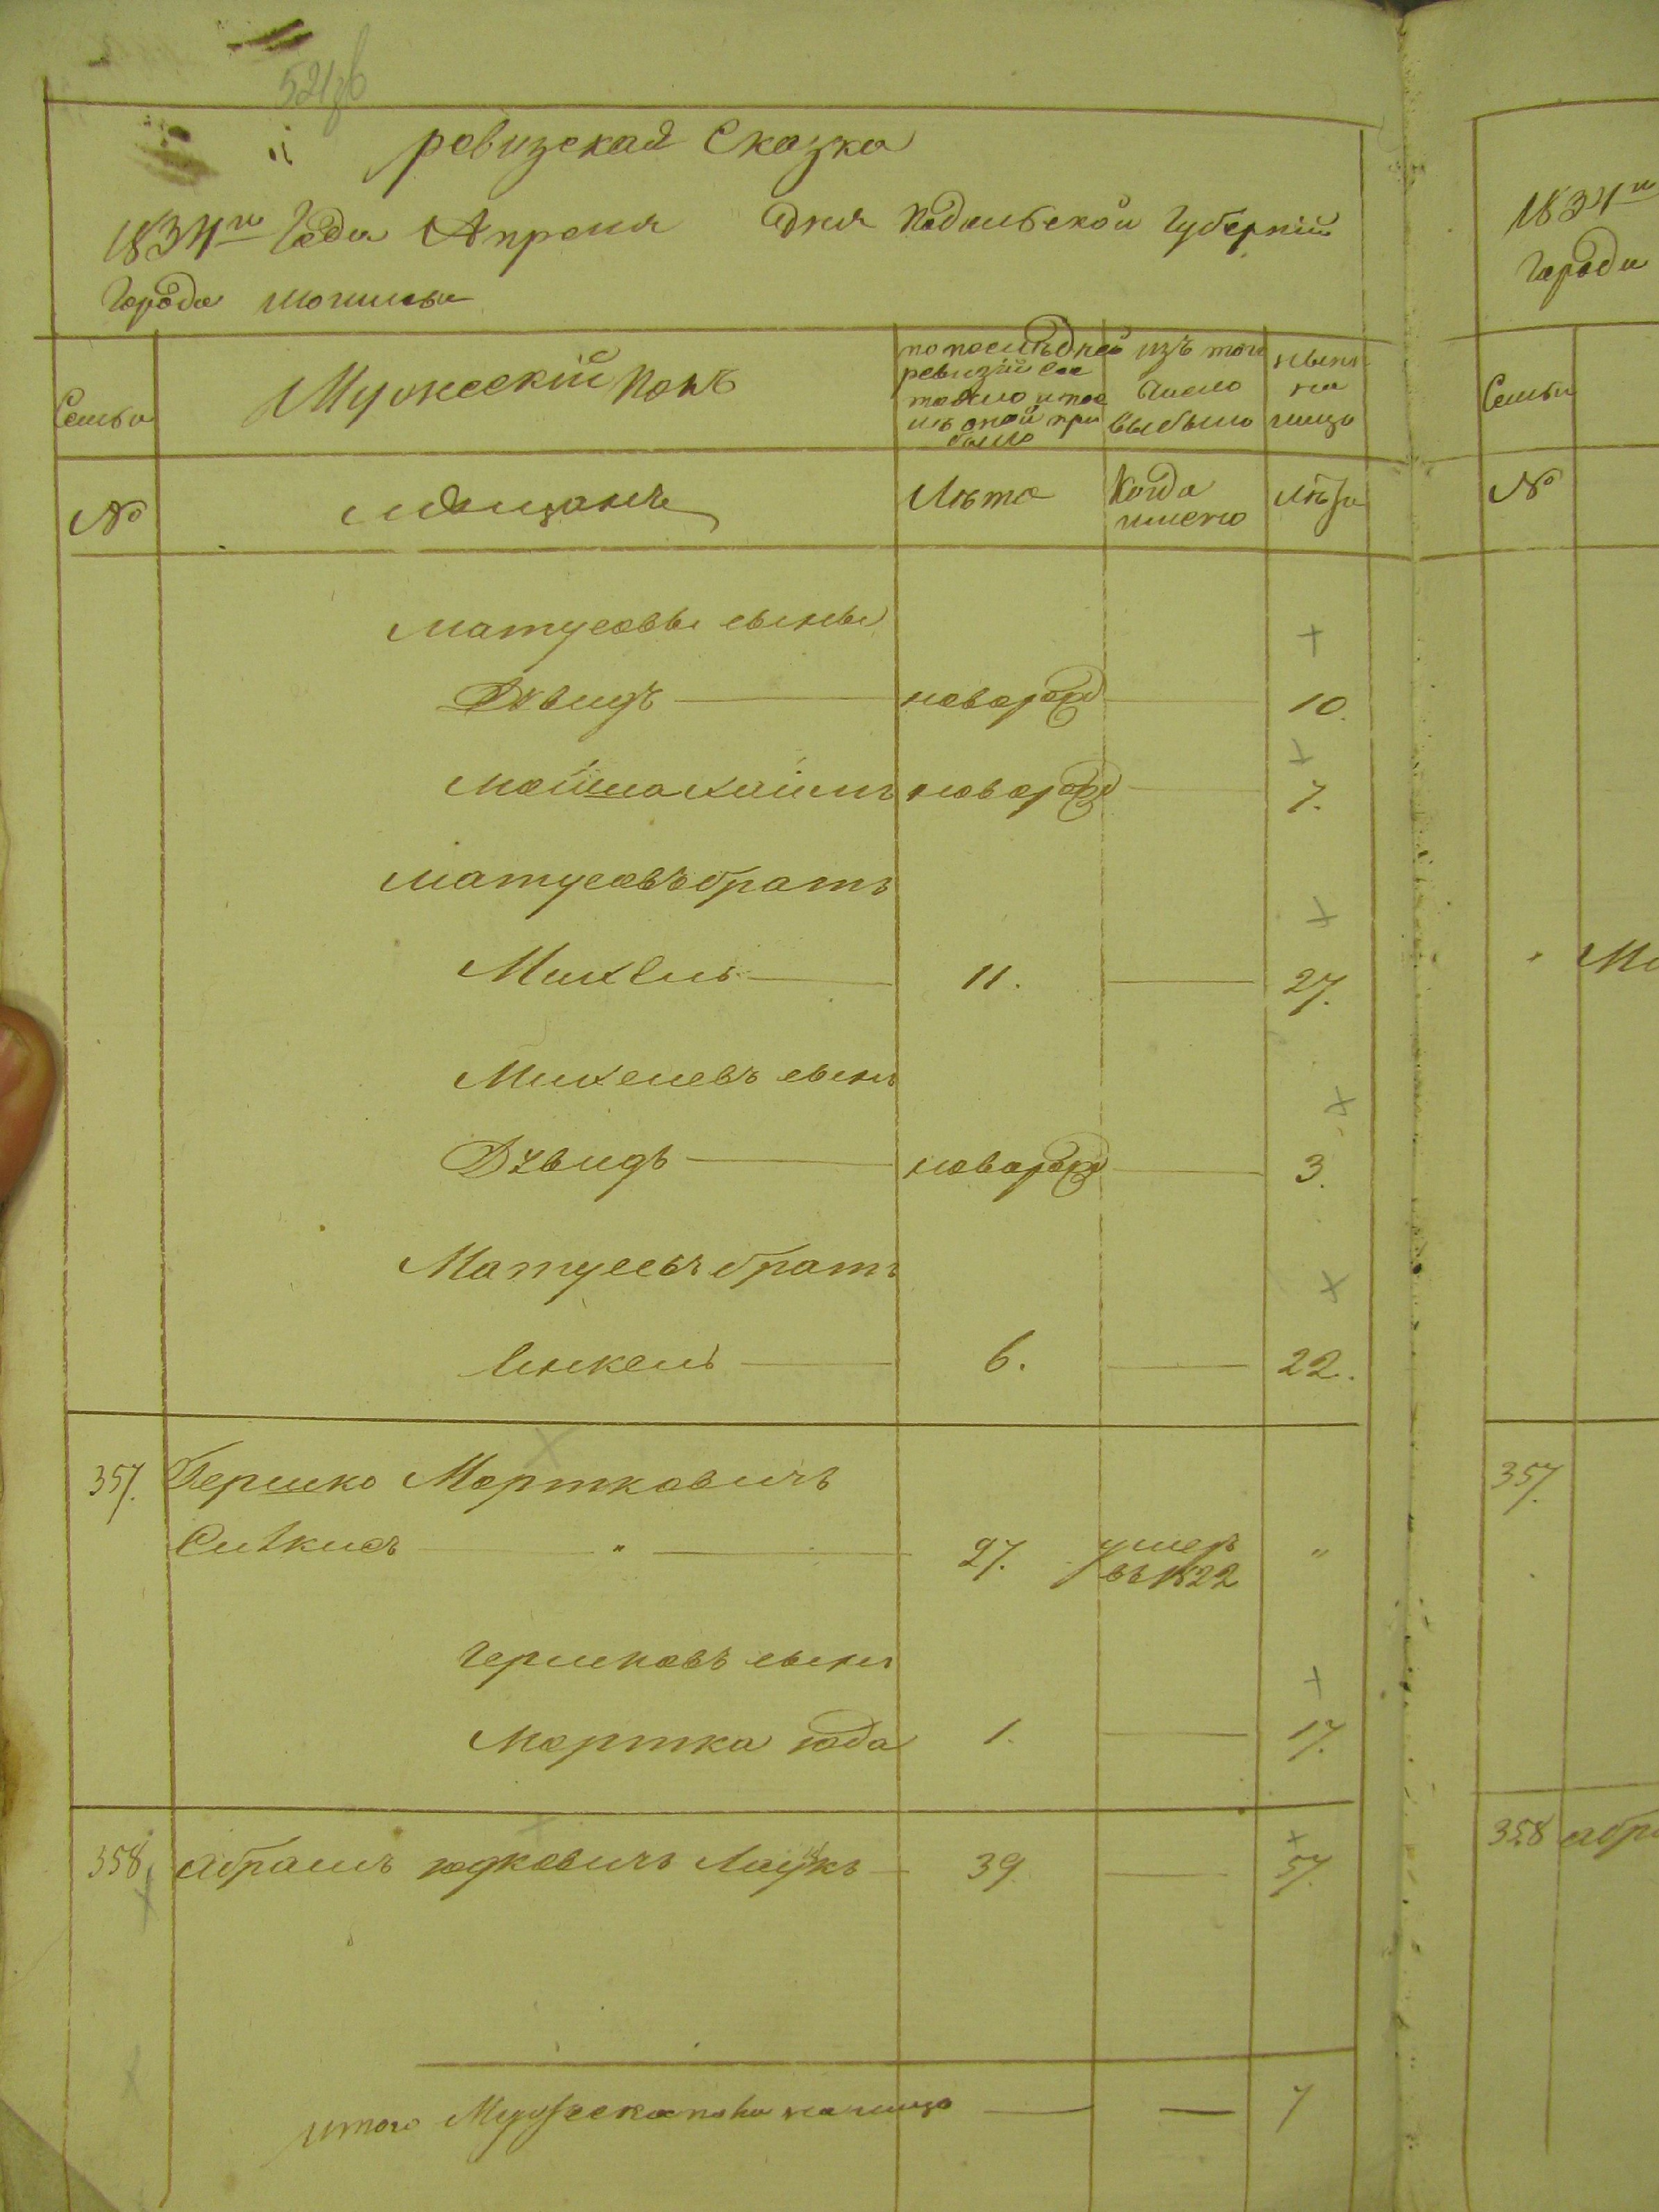 521об
ревизская Сказка
1834го Года Апреля дня Подольской Губерніи
Города могилева
Семьи
Мужескій полъ
по последней ревизіи состояло и после оной прибыло
изъ того число выбыло
ныне на лицо
№
мещане
Лета
Когда имено
Лета
Матусовы сыны
Дувидъ новорожд 10.
Мошка хаимъ новорожд 7.
Матусовъ братъ
Михель 11. 27.
Михелевъ сынъ
Дувидъ новорожд 3.
Матусовъ братъ
Янкель 6. 22.
357. Гершко Мортковичъ
27. умеръ въ 1822 "
Гершковъ сынъ
Мортка юда 1. 17.
358. Абрамъ юдковичъ 39. 57.
итого Мужеска пола на лицо 7
1834го
Города
Семьи
№
357.
358 абр